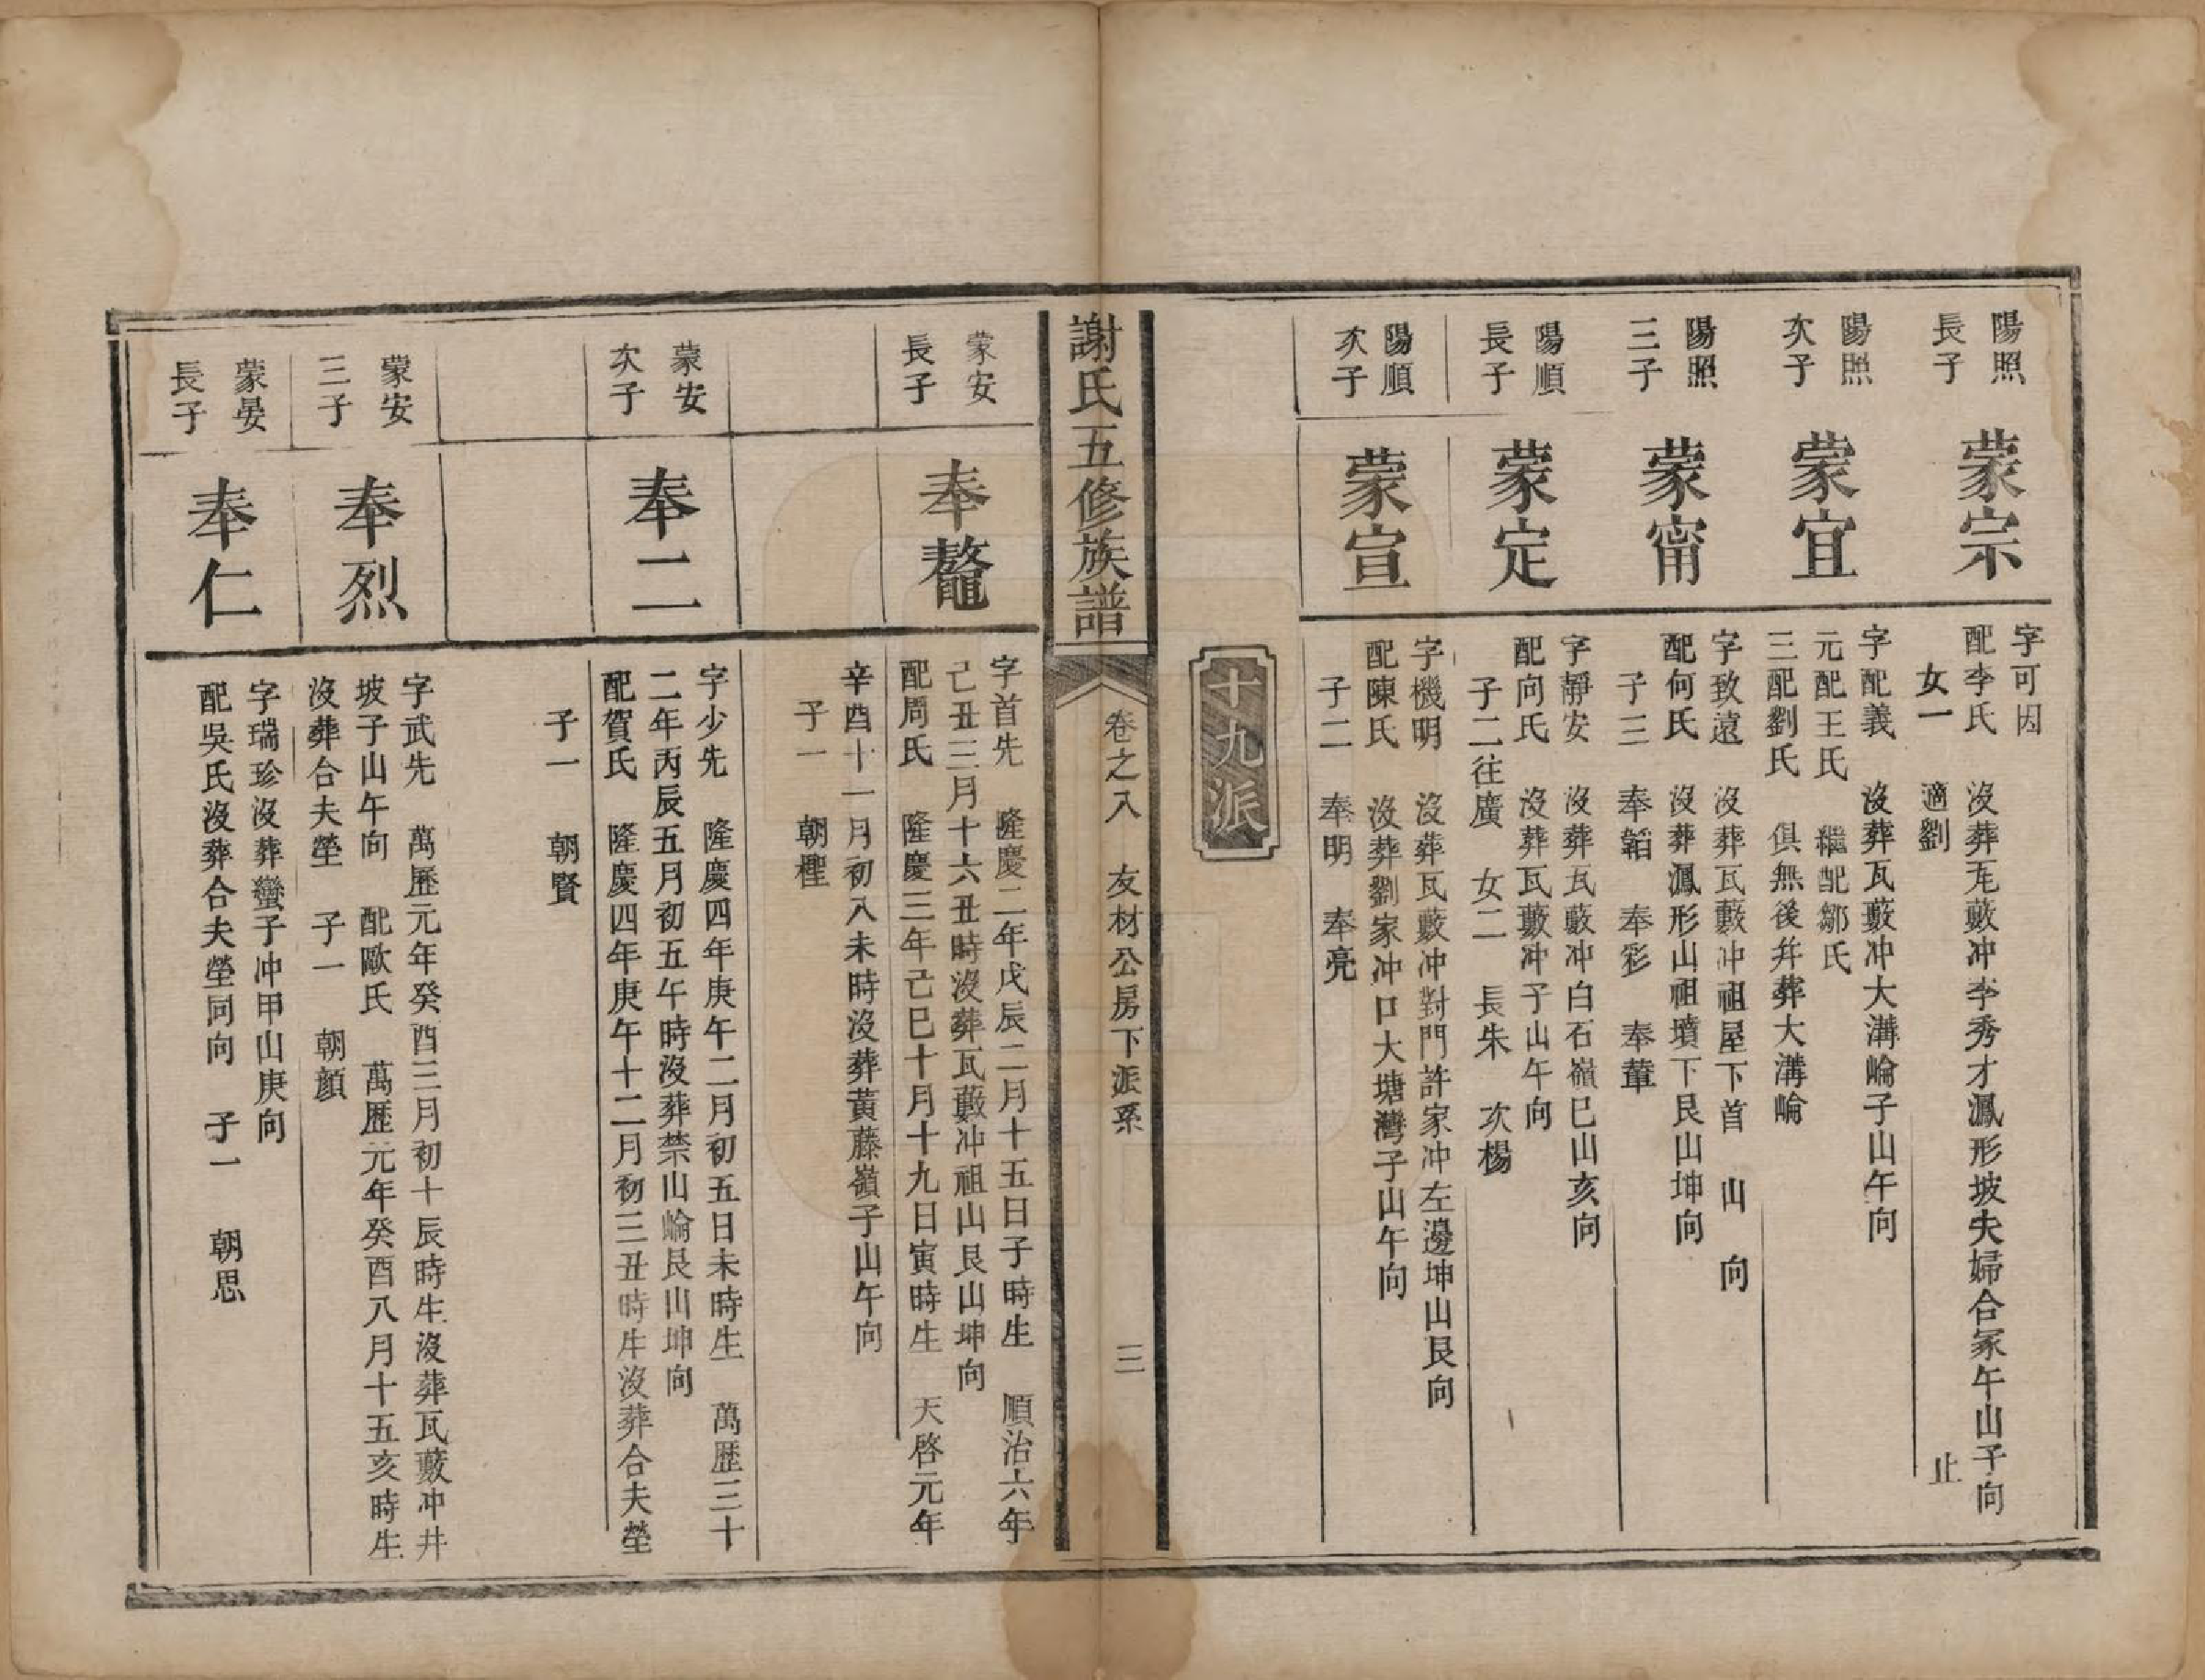 陽照
長子
蒙宗
字可因
配李氏　沒葬瓦藪冲李秀才鳳形坡夫婦合冢午山子向
女一　適劉　止
陽照
次子
蒙宜
字配義　沒葬瓦藪冲大溝崘子山午向
元配王氏　繼配鄒氏
三配劉氏　俱無後并葬大溝崘
陽照
三子
蒙甯
字致遠　沒葬瓦藪冲祖屋下首　山　向
配何氏　沒葬鳳形山祖墳下艮山坤向
子三　奉韜　奉彩　奉葷
陽順
長子
蒙定
字靜安　沒葬瓦藪冲白石嶺巳山亥向
配向氏　沒葬瓦藪冲子山午向
子二往廣　女二　長朱　次楊
陽順
次子
蒙宣
字機明　沒葬瓦藪冲對門許家冲左邊坤山艮向
配陳氏　沒葬劉家冲口大塘灣子山午向
子二　奉明　奉亮
十九派
謝氏五修族譜
卷之八　友材公房下派系
三
蒙安
長子
奉鼇
字首先　隆慶二年戊辰二月十五日子時生　順治六年
己丑三月十六丑時沒葬瓦藪冲祖山艮山坤向
配周氏　隆慶三年己巳十月十九日寅時生　天啓元年
辛酉十一月初八未時沒葬黃藤嶺子山午向
子一　朝檉
蒙安
次子
奉二
字少先　隆慶四年庚午二月初五日未時生　萬歷三十
二年丙辰五月初五午時沒葬禁山崘艮山坤向
配賀氏　隆慶四年庚午十二月初三丑時生沒葬合夫塋
子一　朝賢
蒙安
三子
奉烈
字武先　萬歷元年癸酉三月初十辰時生沒葬瓦藪冲井
坡子山午向　配歐氏　萬歷元年癸酉八月十五亥時生
沒葬合夫塋　子一　朝顏
蒙晏
長子
奉仁
字瑞珍沒葬蠻子冲甲山庚向
配吳氏沒葬合夫塋同向　子一　朝思